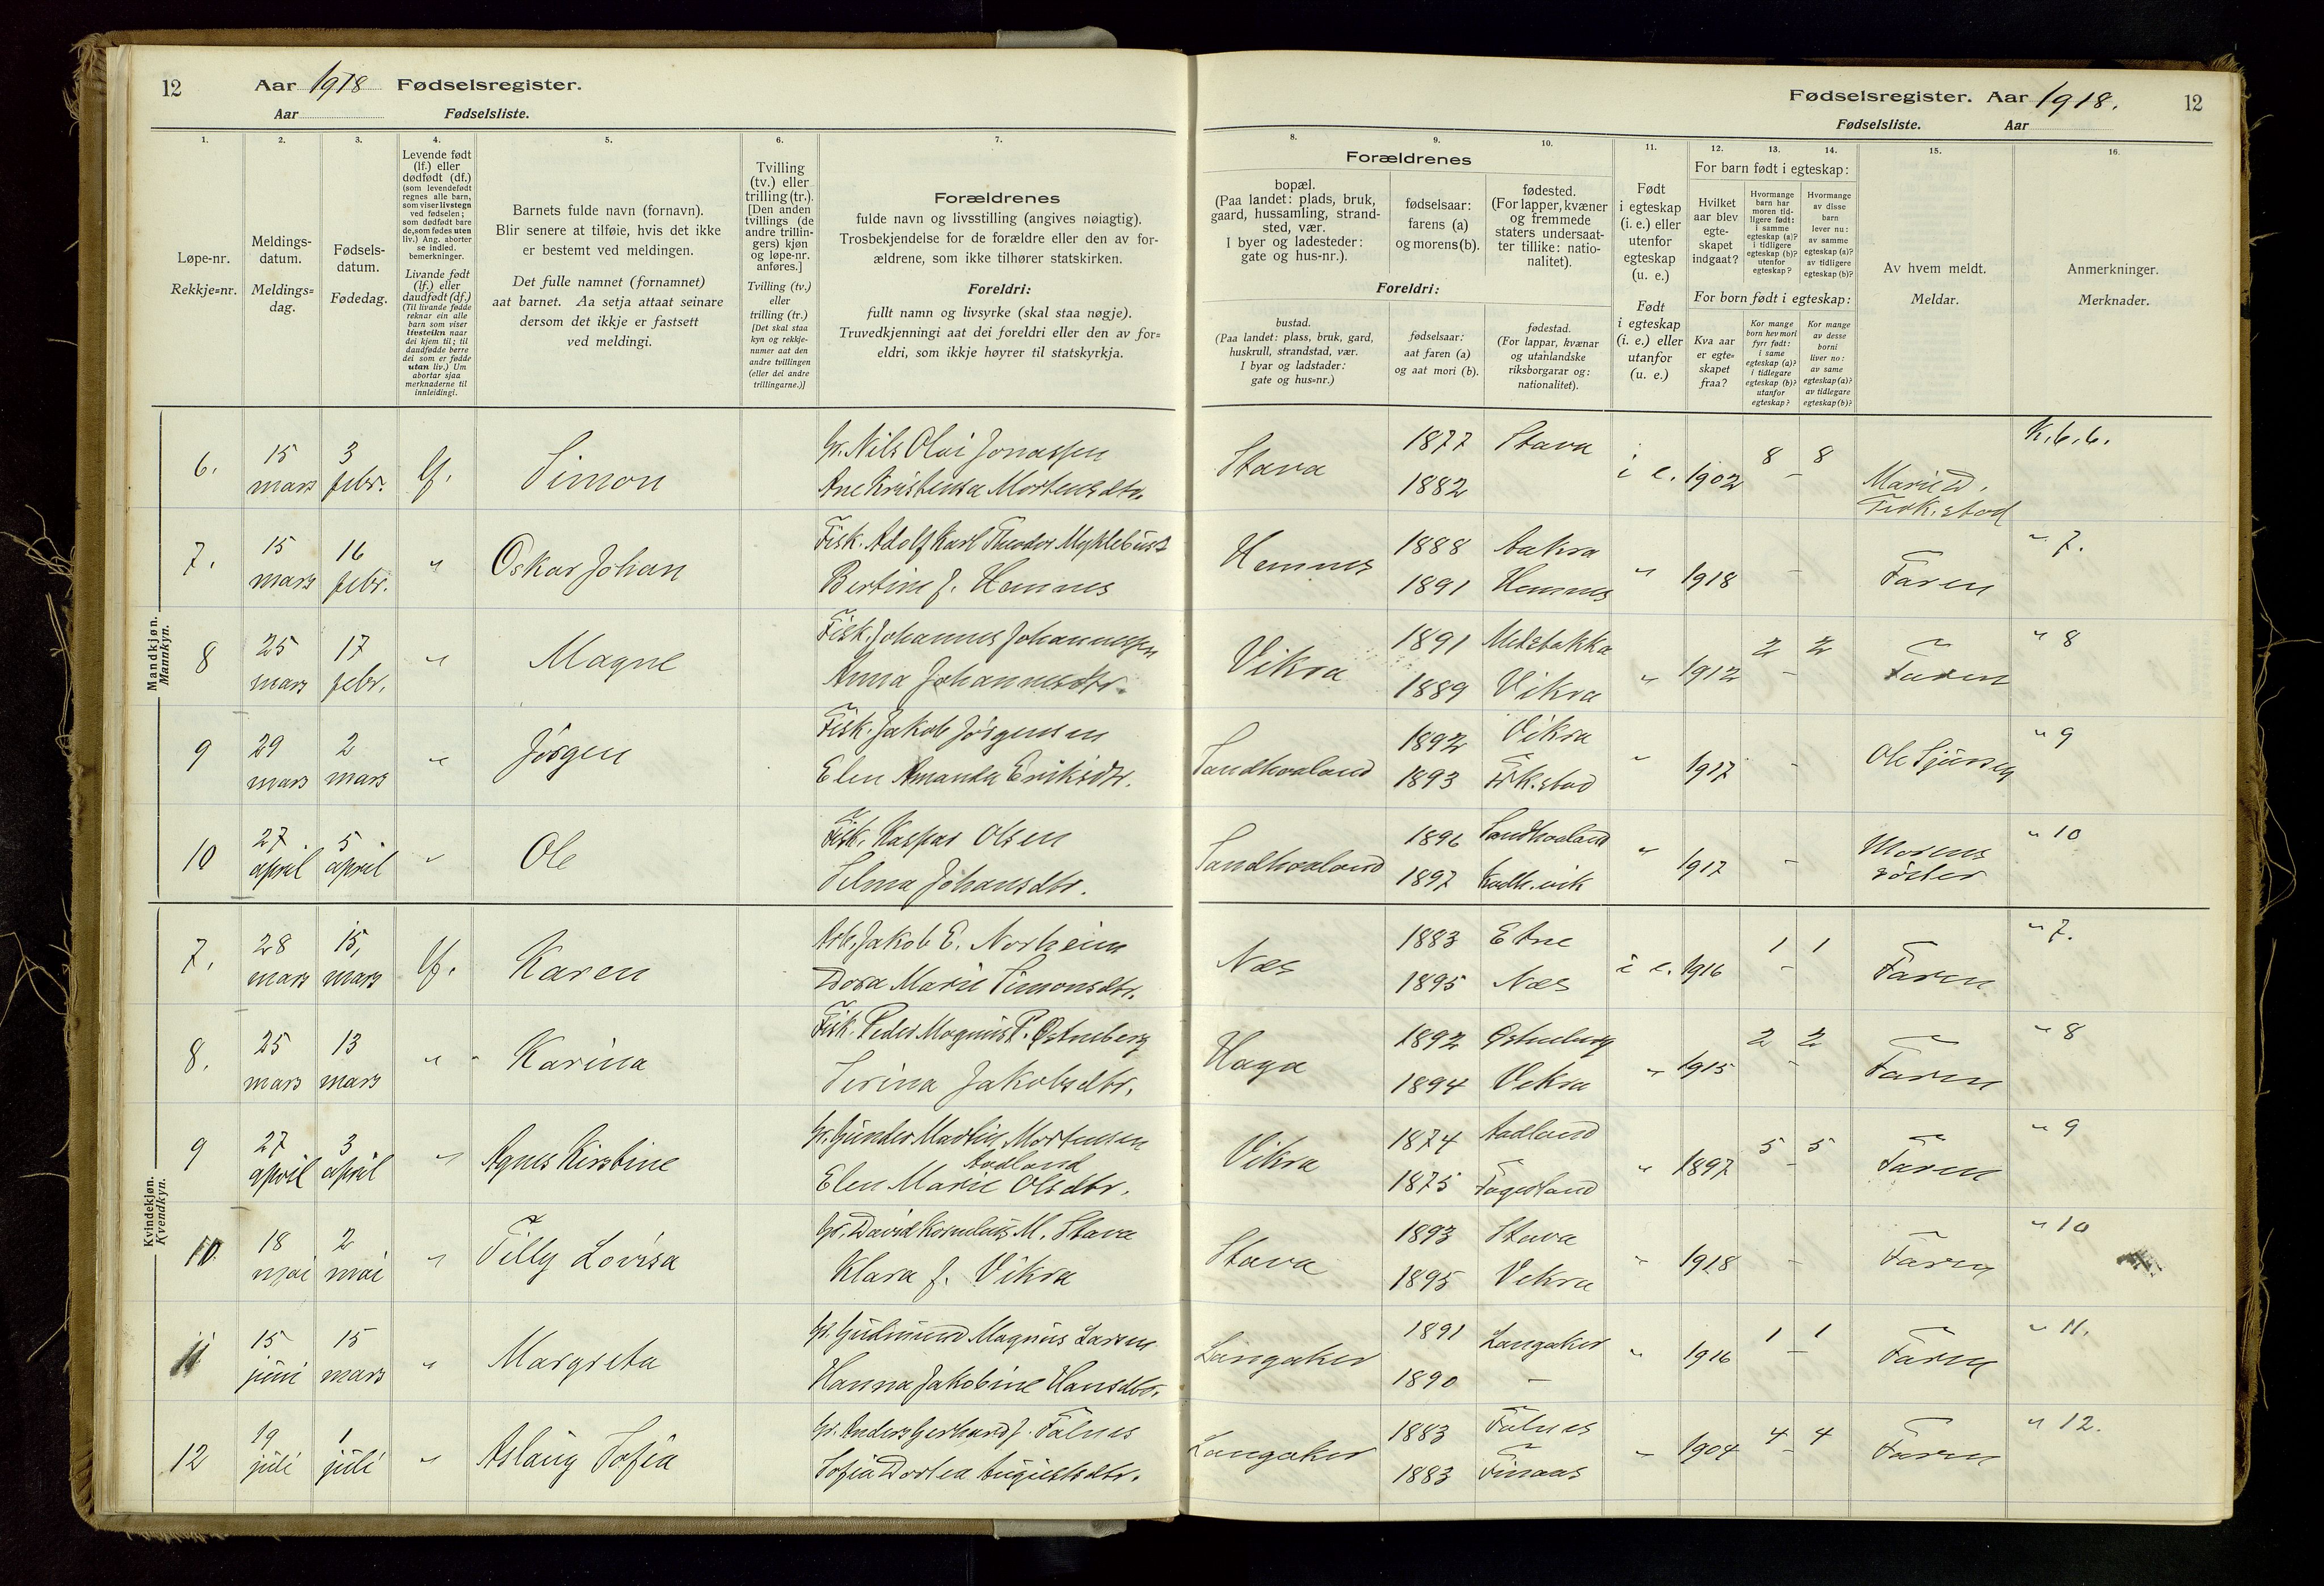 12 Aar 1918 Fødselsregister.
Aar Fødselsliste.
Fødselsregister. Aar 1918. 12
Fødselsliste. Aar
1. 2. 3. 4. 5. 6. 7.
8. 9. 10. 11. 12. 13. 14. 15. 16.
Løpe-nr.
Rekkje=nr.
Meldings-
datum.
Meldings=
dag.
Fødsels-
datum.
Fødedag.
Levende født
(lf.) eller
dødfødt (df.)
(som levendefødt
regnes alle barn,
som viser livstegn
ved fødselen;
som dødfødt bare
de, som fødes uten
liv.) Ang. aborter
se indled.
bemerkninger.
Livande født
(lf.) eller
daudfødt (df.)
(Til livande fødde
reknar ein alle
barn som viser
livsteikn naar
dei kjem til; til
daudfødde berre
dei som er fødde
utan liv.) Um
abortar sjaa
merknaderne til
innleidingi.
Barnets fulde navn (fornavn).
Blir senere at tilføie, hvis det ikke
er bestemt ved meldingen.
Det fulle namnet (fornamnet)
aat barnet. Aa setja attaat seinare
dersom det ikkje er fastsett
ved meldingi.
Tvilling
(tv.) eller
trilling (tr.).
[Den anden
tvillings (de
andre trillin-
gers) kjøn
og løpe-nr.
anføres.]
Tvilling (tv.)
eller
trilling (tr.)
[Det skal staa
kyn og rekkje-
numer aat den
andre tvillingen
(eller dei andre
trillingarne.)]
Forældrenes
fulde navn og livsstilling (angives nøiagtig).
Trosbekjendelse for de forældre eller den av for-
ældrene, som ikke tilhører statskirken.
Foreldri:
fullt namn og livsyrke (skal staa nøgje).
Truvedkjenningi aat dei foreldri eller den av for=
eldri, som ikkje høyrer til statskyrkja.
Forældrenes
bopæl.
(Paa landet: plads, bruk,
gaard, hussamling, strand-
sted, vær.
I byer og ladesteder:
gate og hus-nr.).
fødselsaar:
farens (a)
og morens (b).
fødested.
(For lapper, kvæner
og fremmede
staters undersaat-
ter tillike: natio-
nalitet).
Foreldri:
bustad.
(Paa landet: plass, bruk, gard,
huskrull, strandstad, vær.
I byar og ladstader:
gate og hus=nr.)
fødselsaar:
aat faren (a)
og aat mori (b).
fødestad.
(For lappar, kvænar
og utanlandske
riksborgarar og:
nationalitet).
Født
i egteskap
(i. e.) eller
utenfor
egteskap
(u. e.)
Født
i egteskap
(i. e.) eller
utanfor
(u. e.)
For barn født i egteskap:
Hvilket
aar blev
egte-
skapet
indgaat?
Hvormange
barn har
moren tid-
ligere født:
i samme
egteskap (a)?
i tidligere
egteskap (b)?
utenfor
egteskap?
Hvormange
av disse
barn
lever nu:
av samme
egteskap (a)?
av tidligere
egteskap (b)?
For born født i egteskap:
Kva aar
er egte=
skapet
fraa?
Kor mange
born hev mori
fyrr født:
i same
egteskap (a)?
i tidlegare
egteskap (b)?
utanfor
egteskap?
Kor mange
av desse
borni
liver no:
av same
egteskap (a)?
av tidlegare
egteskap (b)?
Av hvem meldt.
Meldar.
Anmerkninger.
Merknader.
Mandkjøn.
Mannkyn.
6. 15 mars 3 febr. lf. Simon
Gr. Nils Olai Jonassen
Ane Kristensa Mortensdtr.
Stava 1877 1882 Stava i e. 1902 8 – 8 Marie D. K. 6. 6.
7. 15 mars 16 febr. " Oskar Johan
Fisk. Adolf Karl Theodor Myklebust
Bertine f. Hemnes
Hemnes 1888 Aakra 1891 Hemnes " 1918 – Faren " 7.
8 25 mars 17 febr. " Magne
Fisk. Johannes Johannessen
Anna Johannesdtr.
Vikra 1891 1889 Vikra " 1912 2 – 2 Faren " 8
9 29 mars 2 mars " Jörgen
Fisk. Jakob Jörgensen
Elen Amanda Eriksdtr.
Sandhaaland 1892 Vikra 1893 " 1917 – " 9
10 27 april 5 april " Ole
Fisk. Kaspar Olsen
Selma Johansdtr.
Sandhaaland 1896 Sandhaaland 1897 " 1917 – Morens söster " 10
Kvindekjøn.
Kvendkyn.
7. 28 mars 15, mars lf. Karen
Arb. Jakob E. Norheim
Dora Marie Simonsdtr.
Næs 1883 Etne 1895 Næs i e. 1916 1 – 1 Faren " 7.
8. 25 mars 13 mars " Karina
Fisk. Peder Magnus P. Østneberg
Serina Jakobsdtr.
Haga 1892 Østneberg 1894 Vikra " 1915 2 – 2 Faren " 8
9 27 april 3 april " Agnes Kirstine
Gr. Gunder Martin Mortensen
Aadland
Elen Marie Olsdtr.
Vikra 1874 Aadland 1875 Fagerland " 1897 5 – 5 Faren " 9
10 18 mai 2 mai " Tilly Lovisa
Gr. David Kornelius M. Stava
Klara f. Vikra
Stava 1893 Stava 1895 Vikra " 1918 – Faren " 10
11 15 juni 15 mars " Margreta
Gr. Gudmund Magnus Larsen
Hanna Jakobine Hansdtr.
Langaker 1891 Langaker 1890 – " 1916 1 – 1 Faren " 11.
12 19 juli 1 juli " Aslaug Sofia
Gr. Anders Gerhard J. Falnes
Sofia Dortea Augustsdtr.
Langaker 1883 Falnes 1883 Finaas " 1904 4 – 4 Faren " 12.